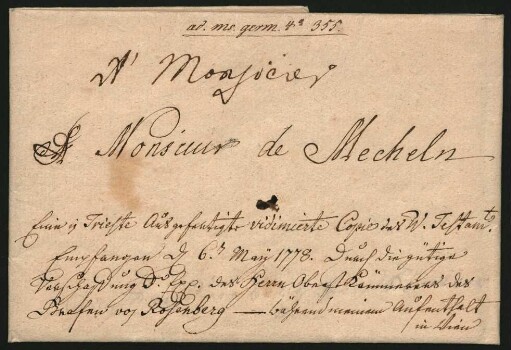 ad. ms. germ. 4º 355.
A' Monsieur
Monsieur de Mecheln
Eine in Trieste Ausgefertigte vidimierte Copie des W. Testamts.
Empfangen d 6.t May 1778. Durch die gütige
Verschaffung Dr Exc. des Herrn Oberst Kämmerers des
Grafen von Rosenberg — während meinem Aufenthalt
in Wien